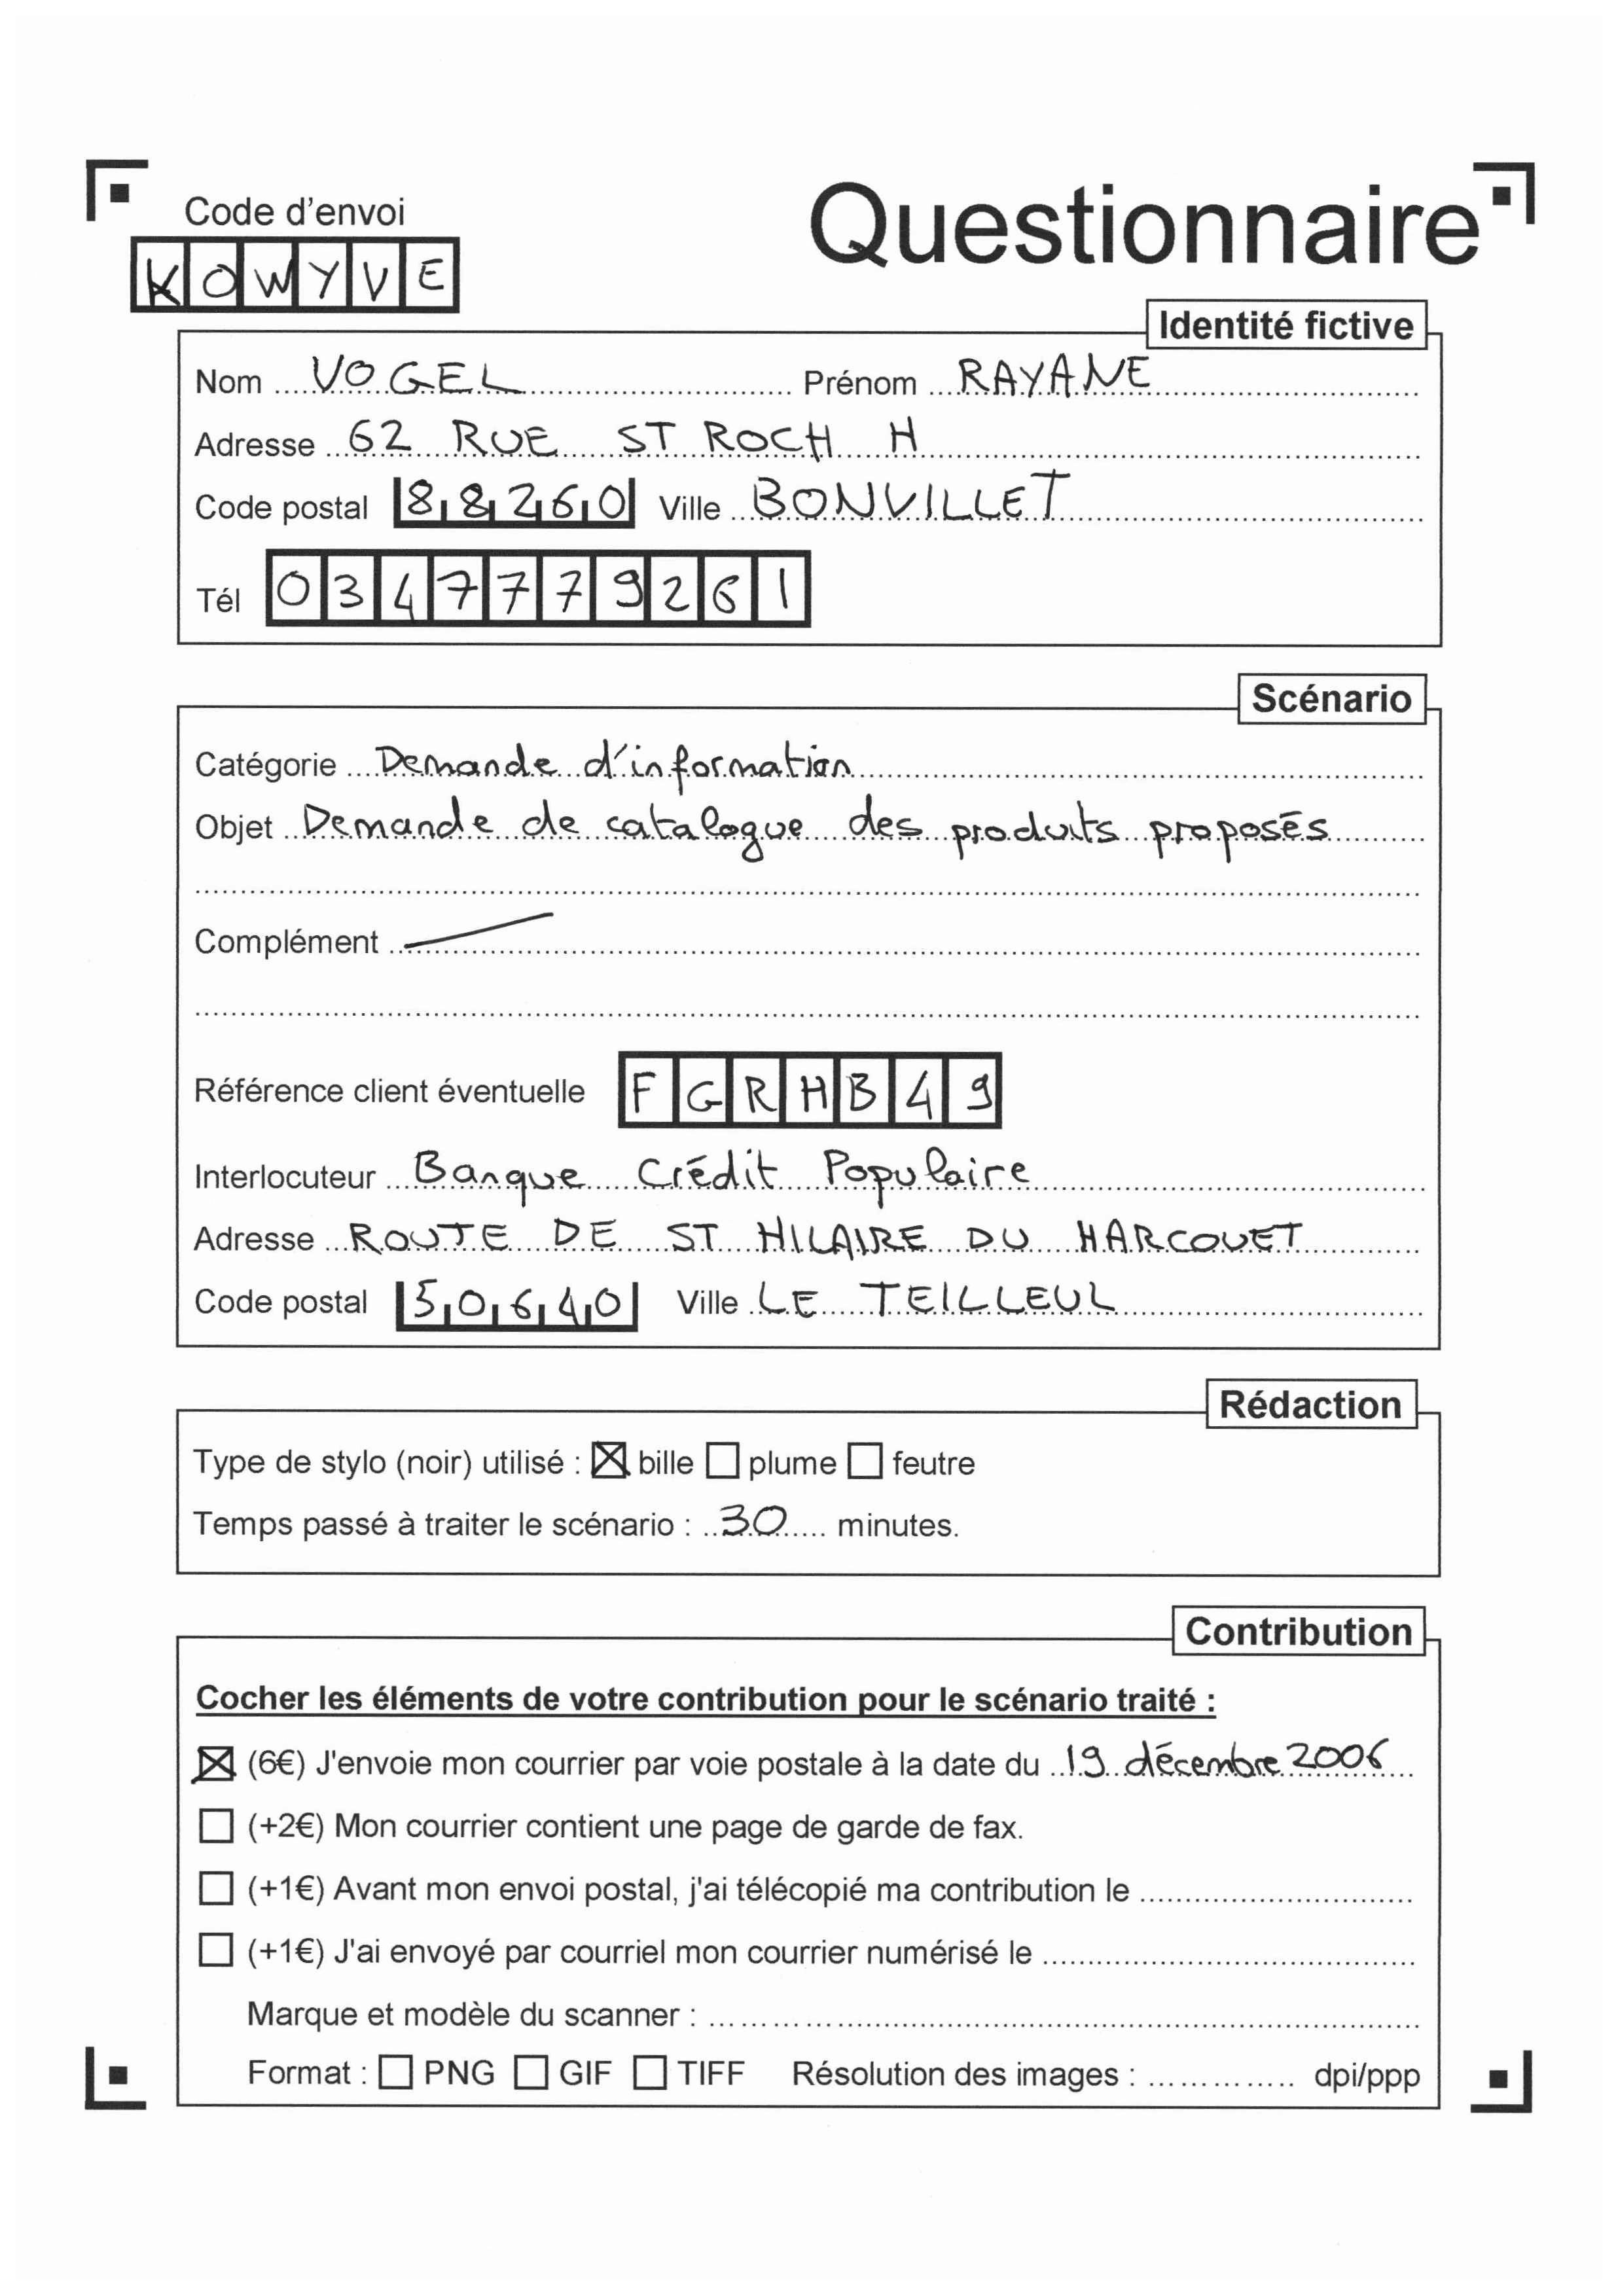 Code d'envoi
Questionnaire
KOWYVE
Identité fictive
Nom VOGEL Prénom RAYANE
Adresse 62 RUE ST ROCH H
Code postal 88260 Ville BONVILLET
Tél 0347779261
Scénario
Catégorie Demande d'information
Objet Demande de catalogue des produits proposés
Complément
Référence client éventuelle FGRHB49
Interlocuteur Banque Crédit Populaire
Adresse ROUTE DE ST HILAIRE DU HARCOUET
Code postal 50640 Ville LE TEILLEUL
Rédaction
Type de stylo (noir) utilisé : ☒ bille ☐ plume ☐ feutre
Temps passé à traiter le scénario : 30 minutes.
Contribution
Cocher les éléments de votre contribution pour le scénario traité :
☒ (6€) J'envoie mon courrier par voie postale à la date du 19 décembre 2006
☐ (+2€) Mon courrier contient une page de garde de fax.
☐ (+1€) Avant mon envoi postal, j'ai télécopié ma contribution le
☐ (+1€) J'ai envoyé par courriel mon courrier numérisé le
Marque et modèle du scanner :
Format : ☐ PNG ☐ GIF ☐ TIFF Résolution des images : dpi/ppp